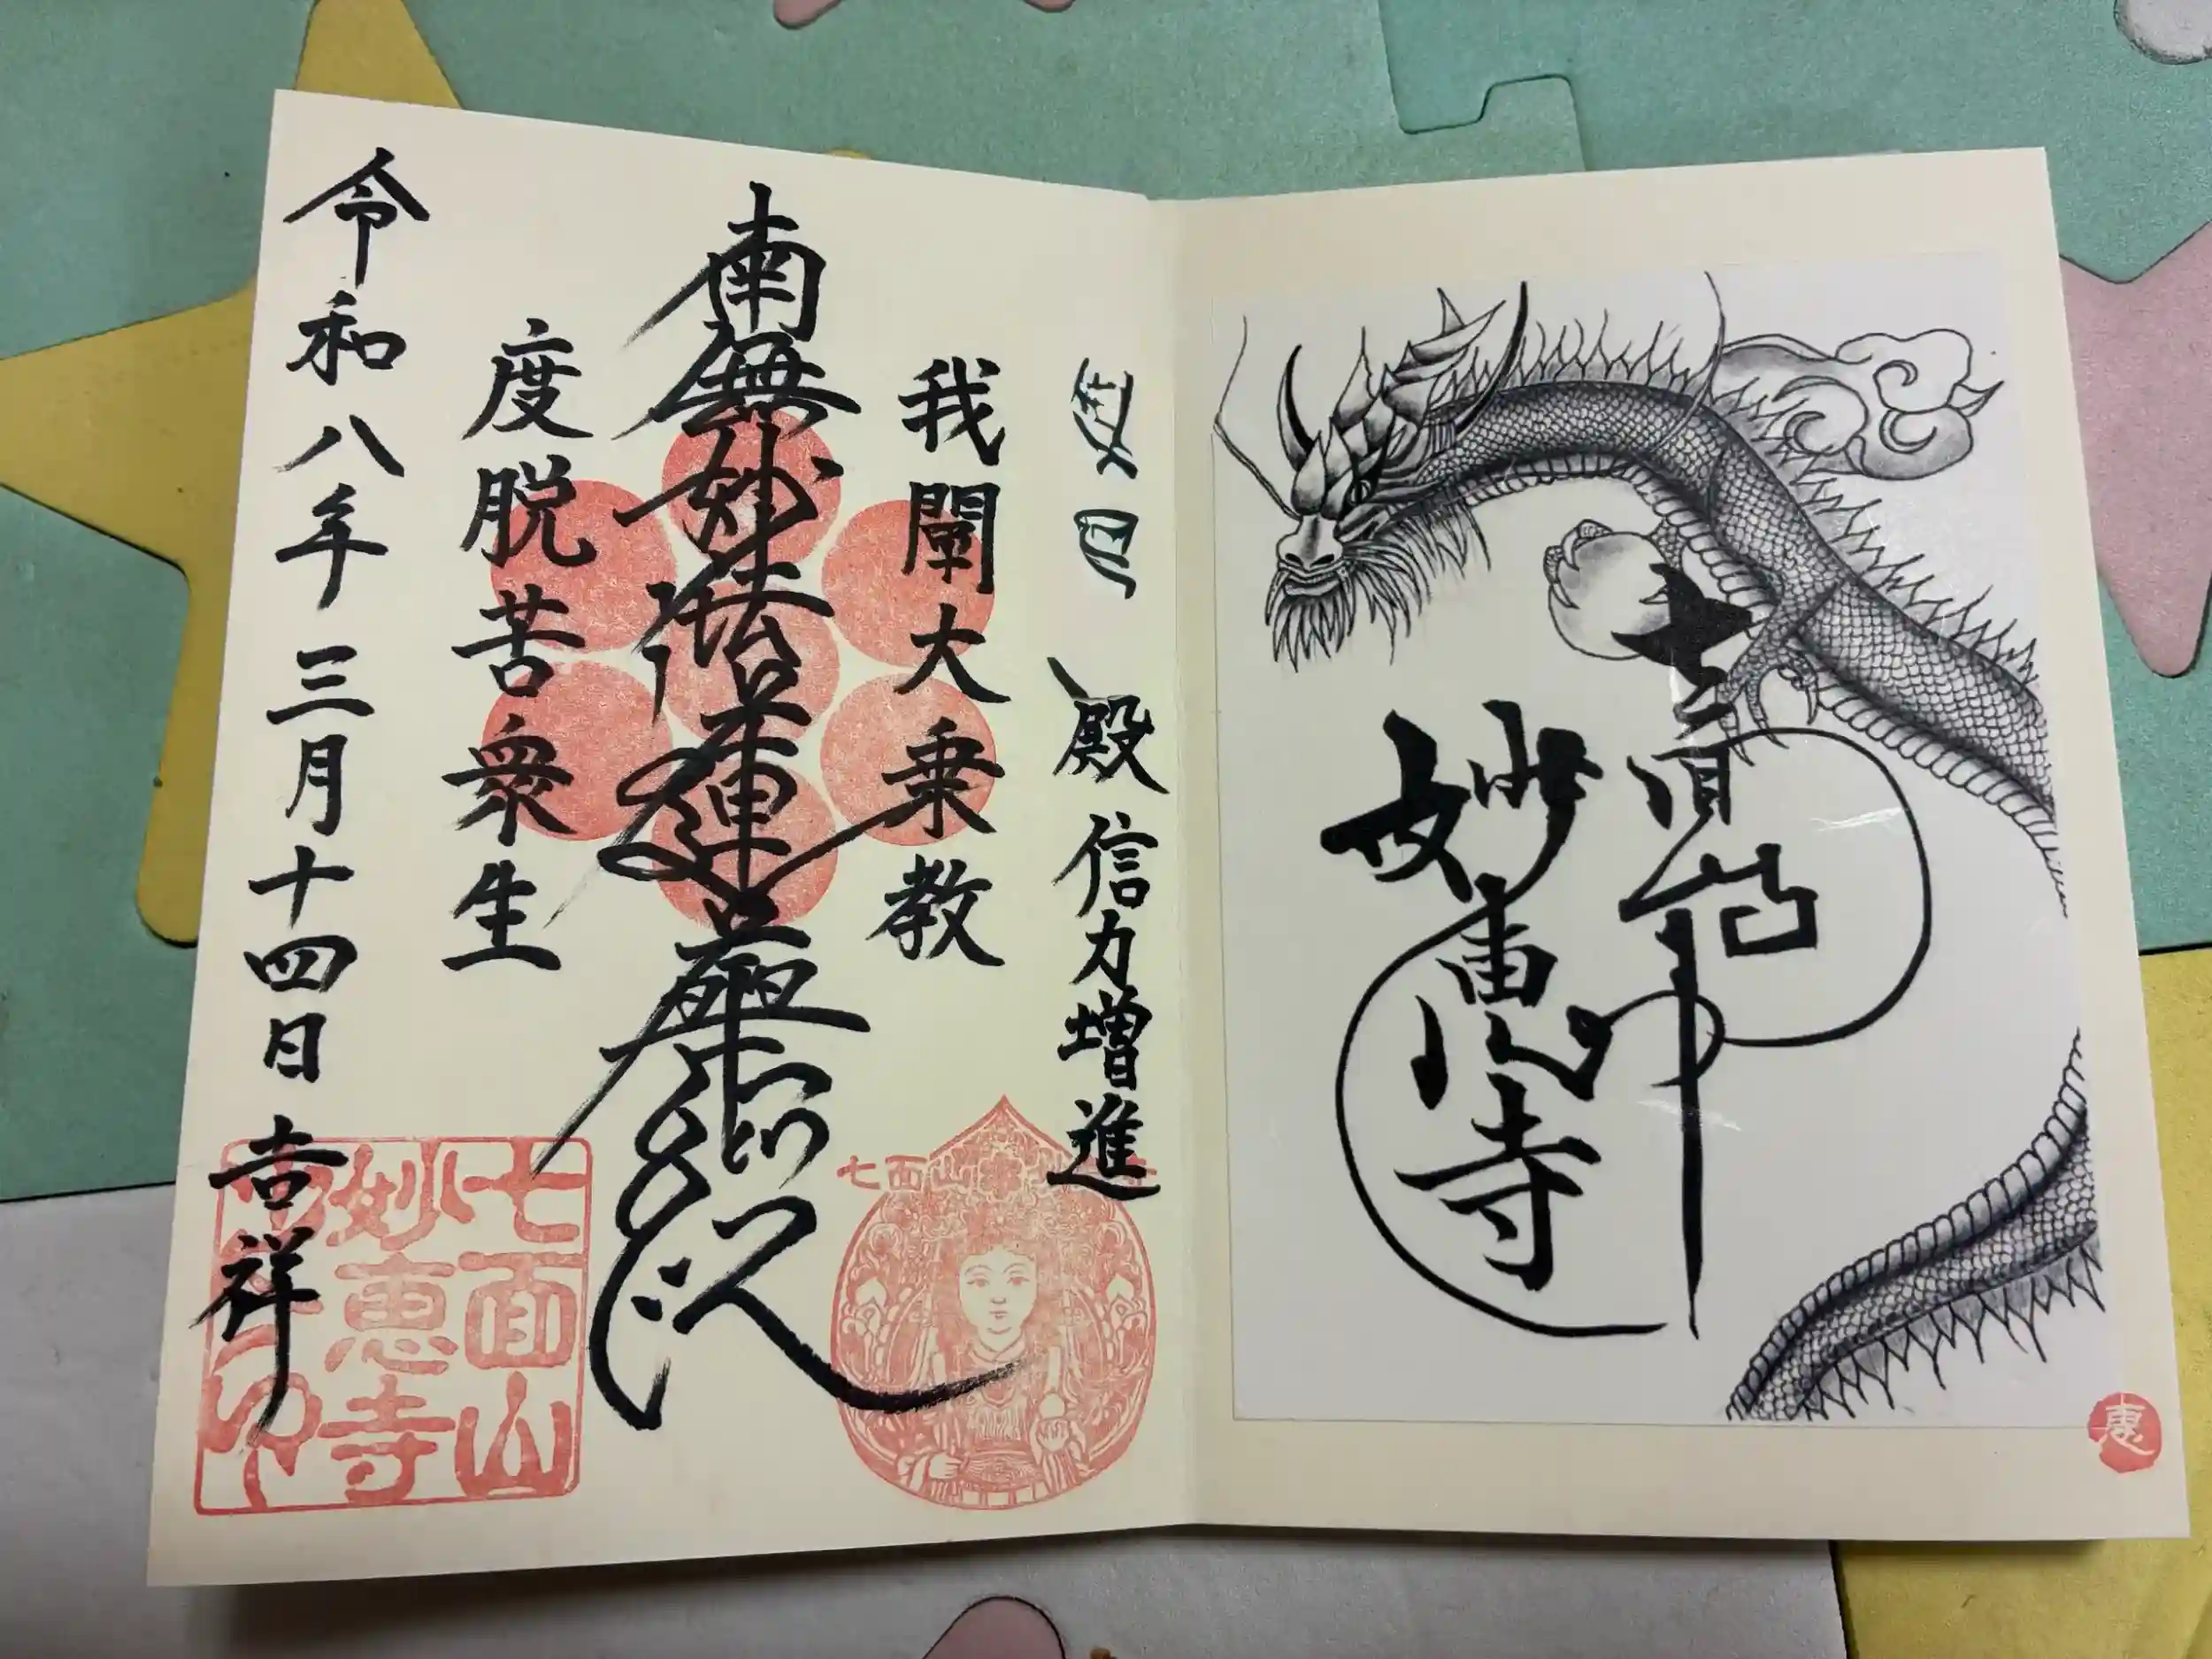 妙恵寺
殿 信力増進
我闡大乗教
南無妙法蓮華経
度脱苦衆生
令和八年三月十四日 吉祥
七面山
七面山
妙恵寺
恵